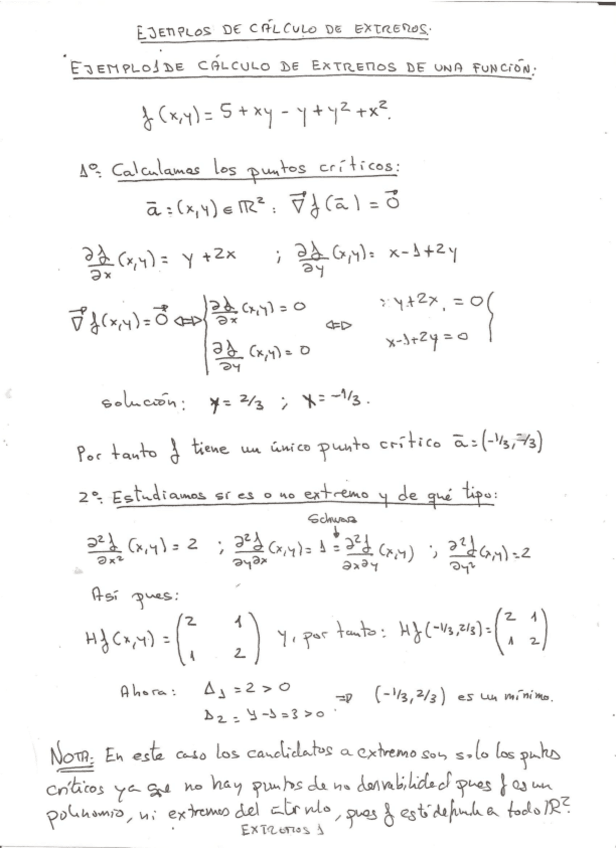 EJEMPLOS DE CÁLCULO DE EXTREMOS.
EJEMPLO 1 DE CÁLCULO DE EXTREMOS DE UNA FUNCIÓN:
f(x,y) = 5 + xy - y + y² + x².
1º: Calculamos los puntos críticos:
ā = (x,y) ∈ ℝ² : ∇f(ā) = 0⃗
∂f/∂x (x,y) = y + 2x ; ∂f/∂y (x,y) = x - 1 + 2y
∇f(x,y) = 0⃗ ⇔ { ∂f/∂x (x,y) = 0 ⇔ y + 2x = 0 }
∂f/∂y (x,y) = 0 x - 1 + 2y = 0
solución: y = 2/3 ; x = -1/3.
Por tanto f tiene un único punto crítico ā = (-1/3, 2/3)
2º: Estudiamos si es o no extremo y de qué tipo:
Schwarz
∂²f/∂x² (x,y) = 2 ; ∂²f/∂y∂x (x,y) = 1 = ∂²f/∂x∂y (x,y) ; ∂²f/∂y² (x,y) = 2
Así pues:
Hf(x,y) = (2 1 / 1 2) y, por tanto: Hf(-1/3, 2/3) = (2 1 / 1 2)
Ahora: Δ₁ = 2 > 0 ⇒ (-1/3, 2/3) es un mínimo.
Δ₂ = 4 - 1 = 3 > 0
NOTA: En este caso los candidatos a extremo son solo los puntos
críticos ya que no hay puntos de no derivabilidad pues f es un
polinomio, ni extremos del intervalo, pues f está definida a todo ℝ².
EXTREMOS 1